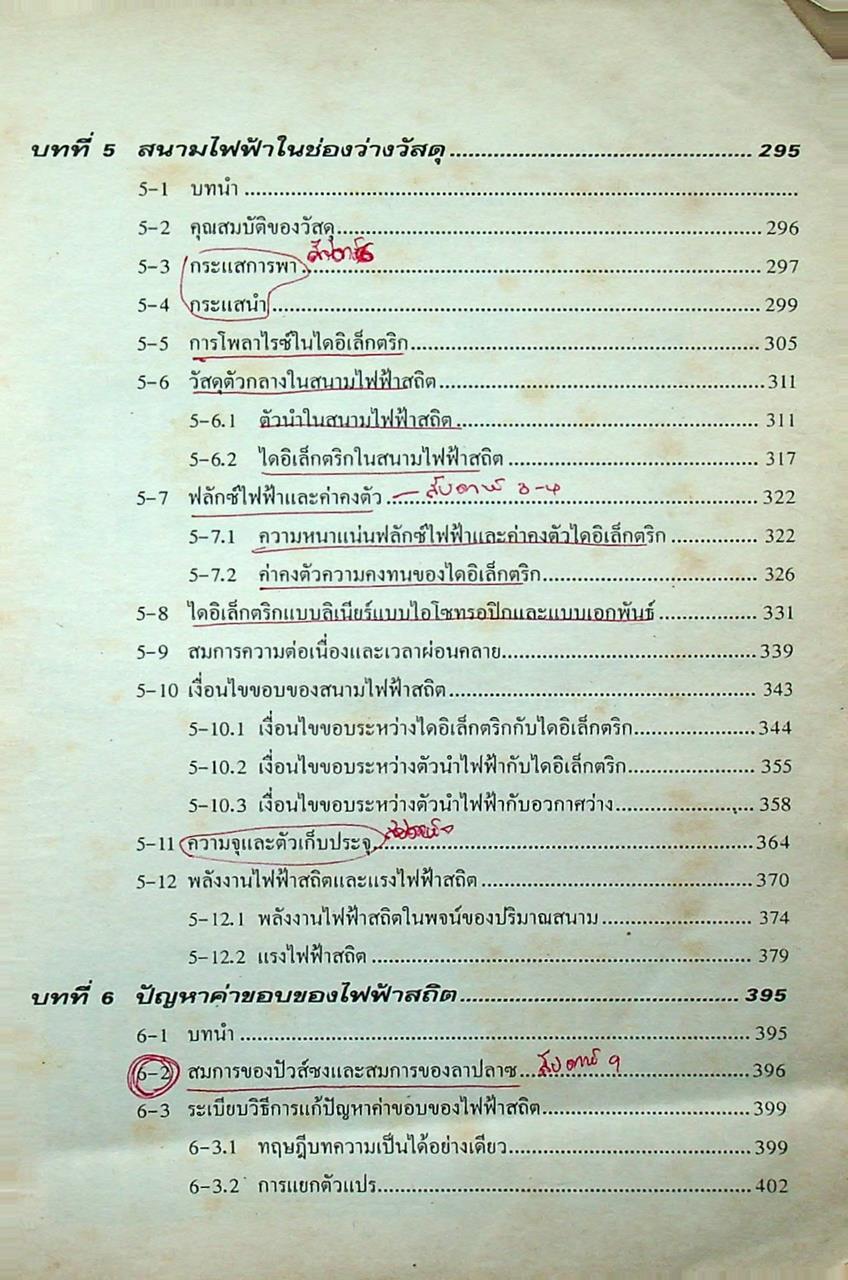 บทที่ 5 สนามไฟฟ้าในช่องว่างวัสดุ 295
5-1 บทนำ
5-2 คุณสมบัติของวัสดุ 296
5-3 กระแสการพา 297
5-4 กระแสนำ 299
5-5 การโพลาไรซ์ในไดอิเล็กตริก 305
5-6 วัสดุตัวกลางในสนามไฟฟ้าสถิต 311
5-6.1 ตัวนำในสนามไฟฟ้าสถิต 311
5-6.2 ไดอิเล็กตริกในสนามไฟฟ้าสถิต 317
5-7 ฟลักซ์ไฟฟ้าและค่าคงตัว สัปดาห์ 3-4 322
5-7.1 ความหนาแน่นฟลักซ์ไฟฟ้าและค่าคงตัวไดอิเล็กตริก 322
5-7.2 ค่าคงตัวความคงทนของไดอิเล็กตริก 326
5-8 ไดอิเล็กตริกแบบลิเนียร์แบบไอโซทรอปิกและแบบเอกพันธ์ 331
5-9 สมการความต่อเนื่องและเวลาผ่อนคลาย 339
5-10 เงื่อนไขขอบของสนามไฟฟ้าสถิต 343
5-10.1 เงื่อนไขขอบระหว่างไดอิเล็กตริกกับไดอิเล็กตริก 344
5-10.2 เงื่อนไขขอบระหว่างตัวนำไฟฟ้ากับไดอิเล็กตริก 355
5-10.3 เงื่อนไขขอบระหว่างตัวนำไฟฟ้ากับอวกาศว่าง 358
5-11 ความจุและตัวเก็บประจุ 364
5-12 พลังงานไฟฟ้าสถิตและแรงไฟฟ้าสถิต 370
5-12.1 พลังงานไฟฟ้าสถิตในพจน์ของปริมาณสนาม 374
5-12.2 แรงไฟฟ้าสถิต 379
บทที่ 6 ปัญหาค่าขอบของไฟฟ้าสถิต 395
6-1 บทนำ 395
6-2 สมการของปัวส์ซงและสมการของลาปลาซ สัปดาห์ 9 396
6-3 ระเบียบวิธีการแก้ปัญหาค่าขอบของไฟฟ้าสถิต 399
6-3.1 ทฤษฎีบทความเป็นได้อย่างเดียว 399
6-3.2 การแยกตัวแปร 402